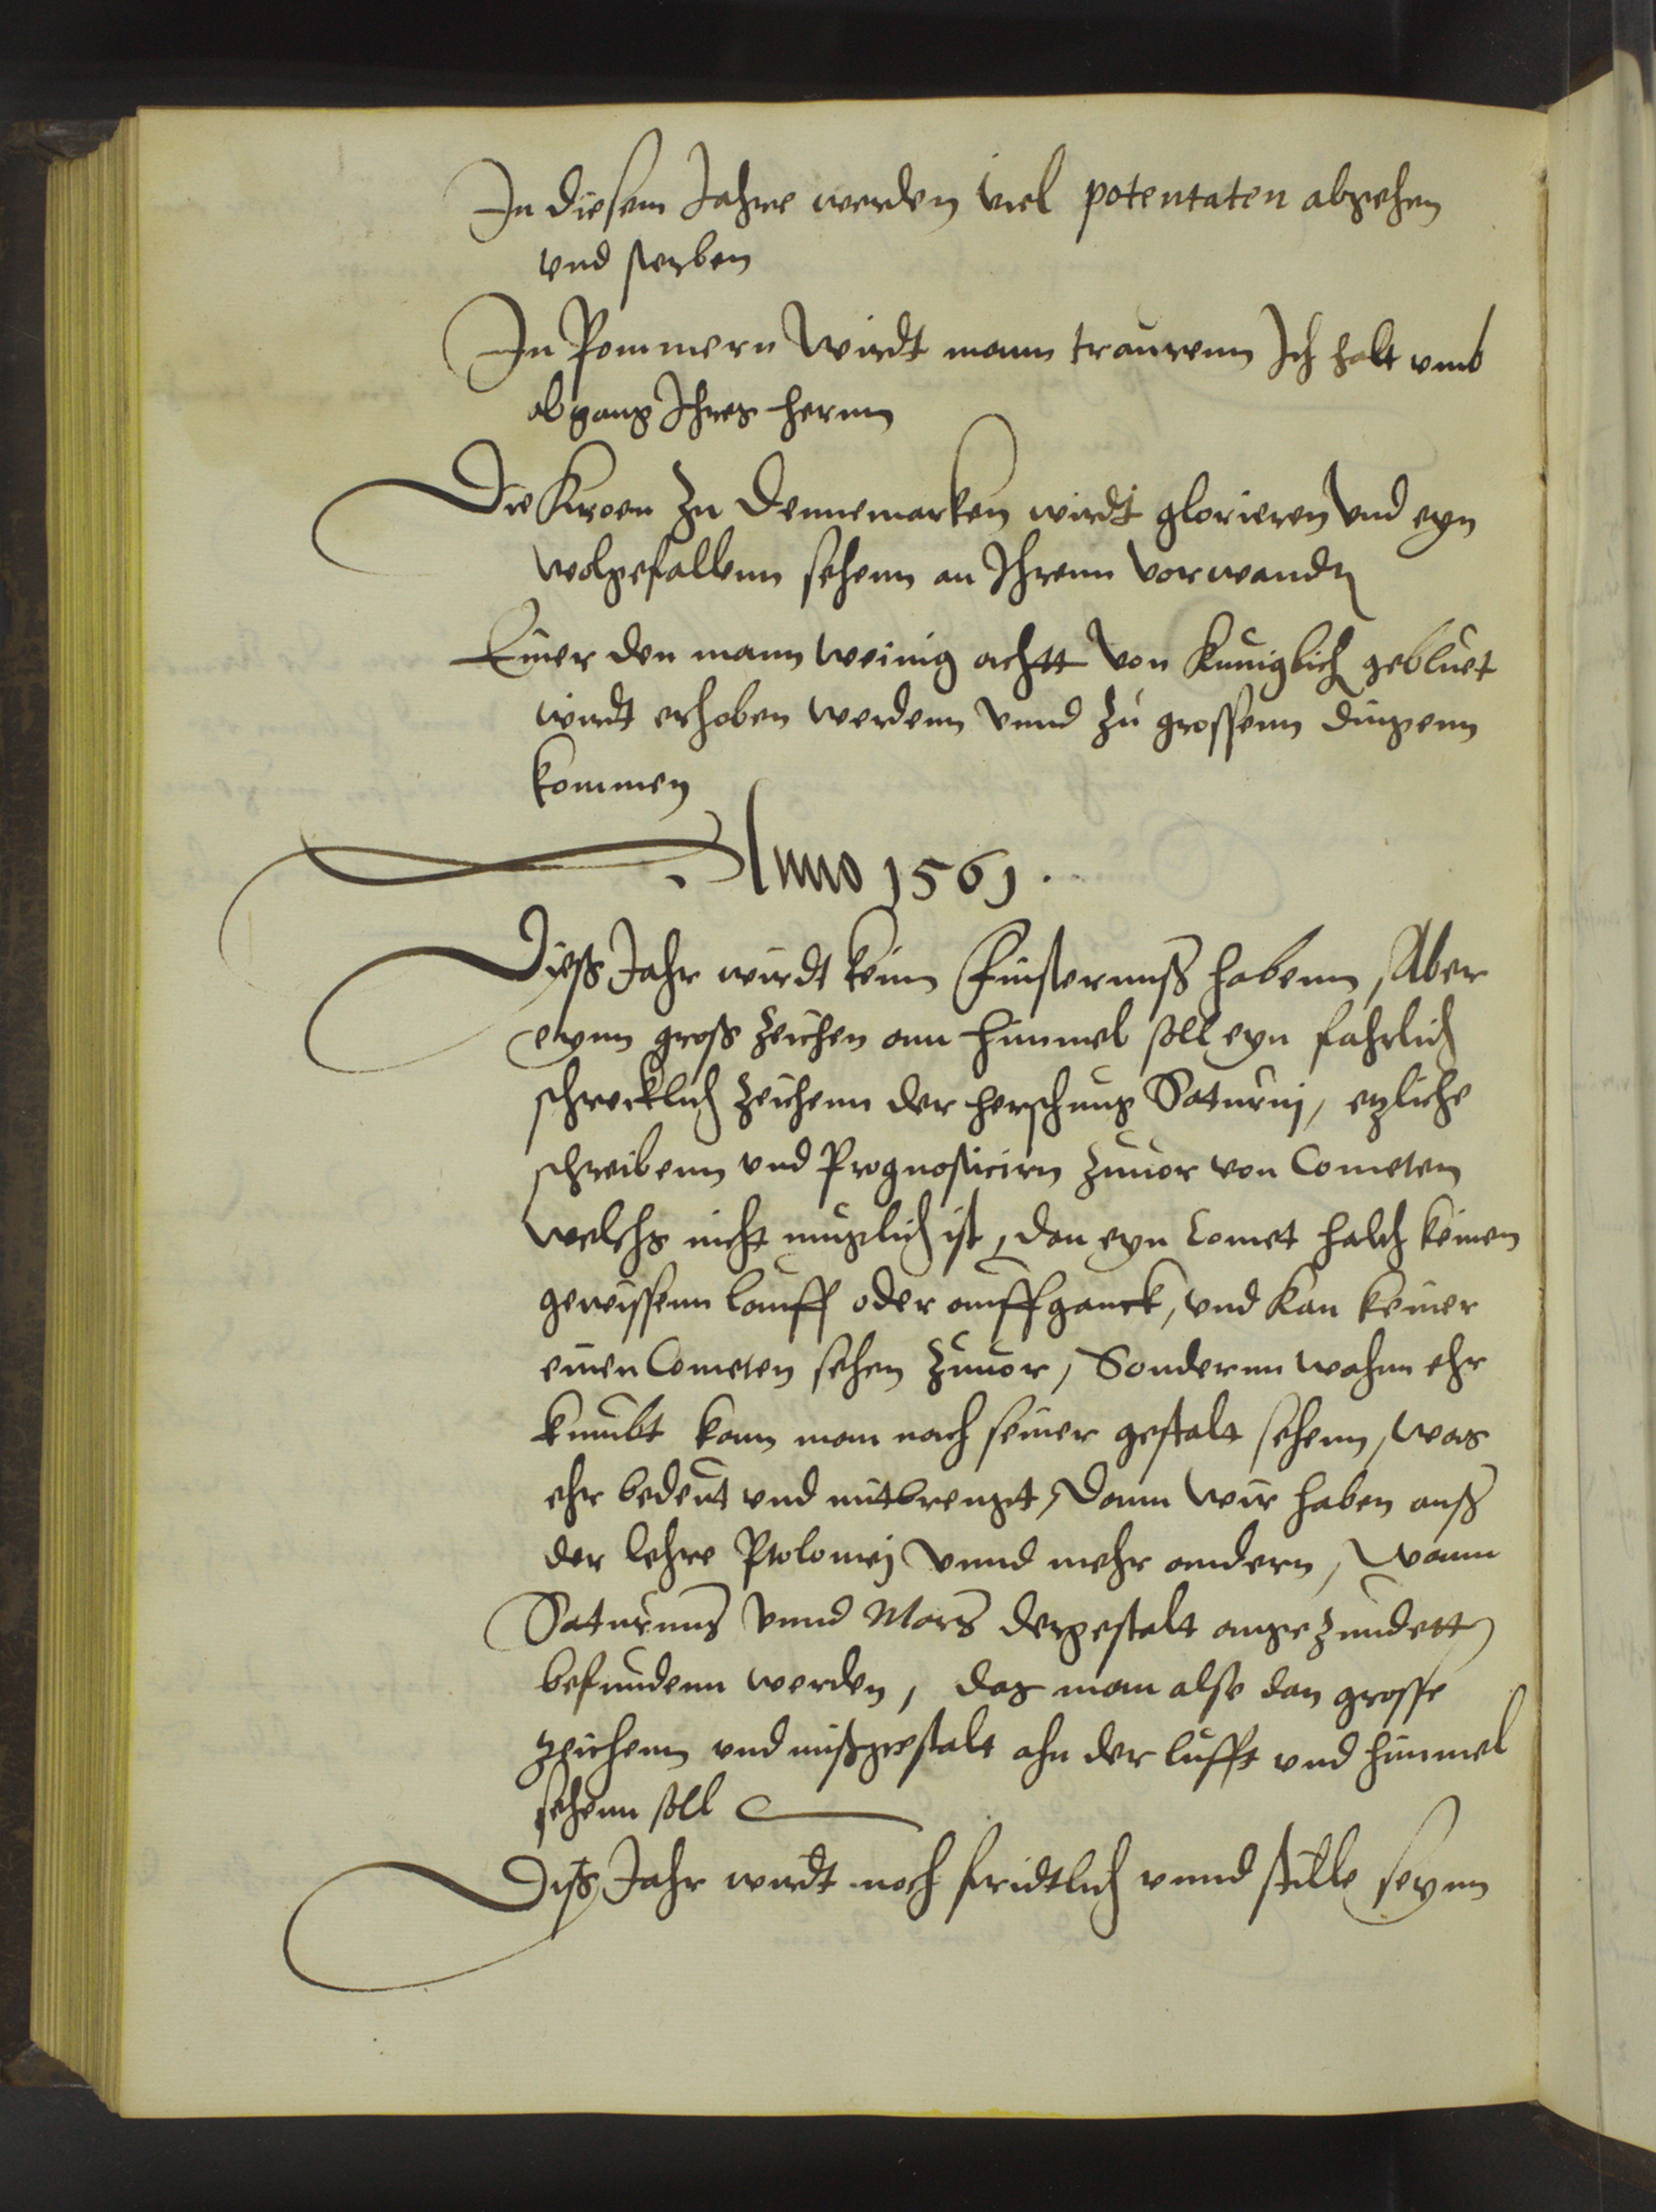 In diesem Jahre werden viel potentaten abgehen
vnd sterben
In Pommern wirdt mann traurenn Ich halt vmb
abgang Ihres herrnn
Die Kroen zu Dennemarken wirdt glorieren vnd eyn
wolgefallenn sehenn an Ihrenn vorwandt
Einer den mann weinig achtt von Kuniglich gebluet
wirdt erhoben werdenn vnnd zu grossenn dingenn
kommen
Anno 1561.
Dieß Jahr wirdt kein Finsternuß habenn, Aber
eynn groß zeichen ann himmel soll eyn fahrlich
schrecklich zeichenn der herschung Saturnj, etzliche
schreibenn vnd Prognosticirn zuuor von Cometen
welchs nicht muglich ist, dan eyn Comet halch keinen
gewissenn lauff oder auffganck, vnd kan keiner
einen Cometen sehen zuuor, Sondernn wahnn ehr
kumbt kann man nach seiner gestalt sehenn, was
ehr bedeut vnd mitbrengt, dann wir haben auß
der lehre Ptolomej vnnd mehr andern, wann
Saturnus vnnd Mars dergestalt angezundett
befundenn werden, das man alse dan grosse
zeichenn vnd mißgestalt ahn der lufft vnd himmel
sehenn soll
Diß Jahr wirdt noch fridtlich vnnd stille seynn